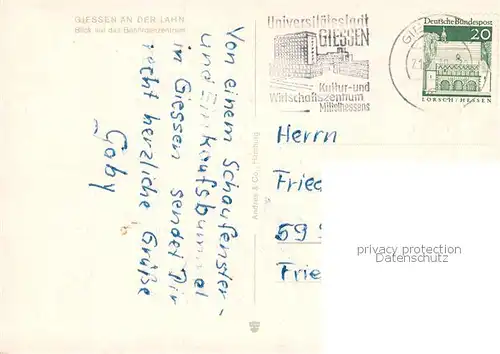 GIESSEN AN DER LAHN
Blick auf das Behördenzentrum
Von einem Schaufenster-
und Einkaufsbummel
in Giessen sendet Dir
recht herzliche Grüße
Gaby
Andres & Co., Hamburg
Universitätsstadt
GIESSEN
Kultur- und
Wirtschaftszentrum
Mittelhessens
Deutsche Bundespost
20
LORSCH/HESSEN
Herrn
Fried
59
Frie
privacy protection
Datenschutz